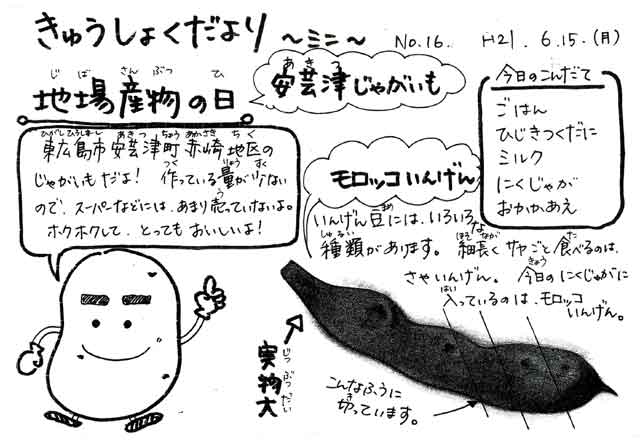 きゅうしょくだより ～ミニ～ No.16. H21. 6.15.(月)
地場産物の日
じばさんぶつ ひ
安芸津じゃがいも
あきつ
今日のこんだて
ごはん
ひじきつくだに
ミルク
にくじゃが
おかかあえ
東広島市安芸津町赤崎地区の
ひがしひろしまし あきつ ちょう あかさき ちく
じゃがいもだよ! 作っている量が少ない
つく りょう すく
ので、スーパーなどには、あまり売っていないよ。
う
ホクホクして、とってもおいしいよ!
モロッコいんげん
いんげん豆には、いろいろな
まめ
種類があります。 細長くサヤごと食べるのは、
しゅるい ほそなが た
さやいんげん。 今日のにくじゃがに
きょう
入っているのは、モロッコ
はい
いんげん。
実物大
じつぶつだい
こんなふうに
切っています。
き